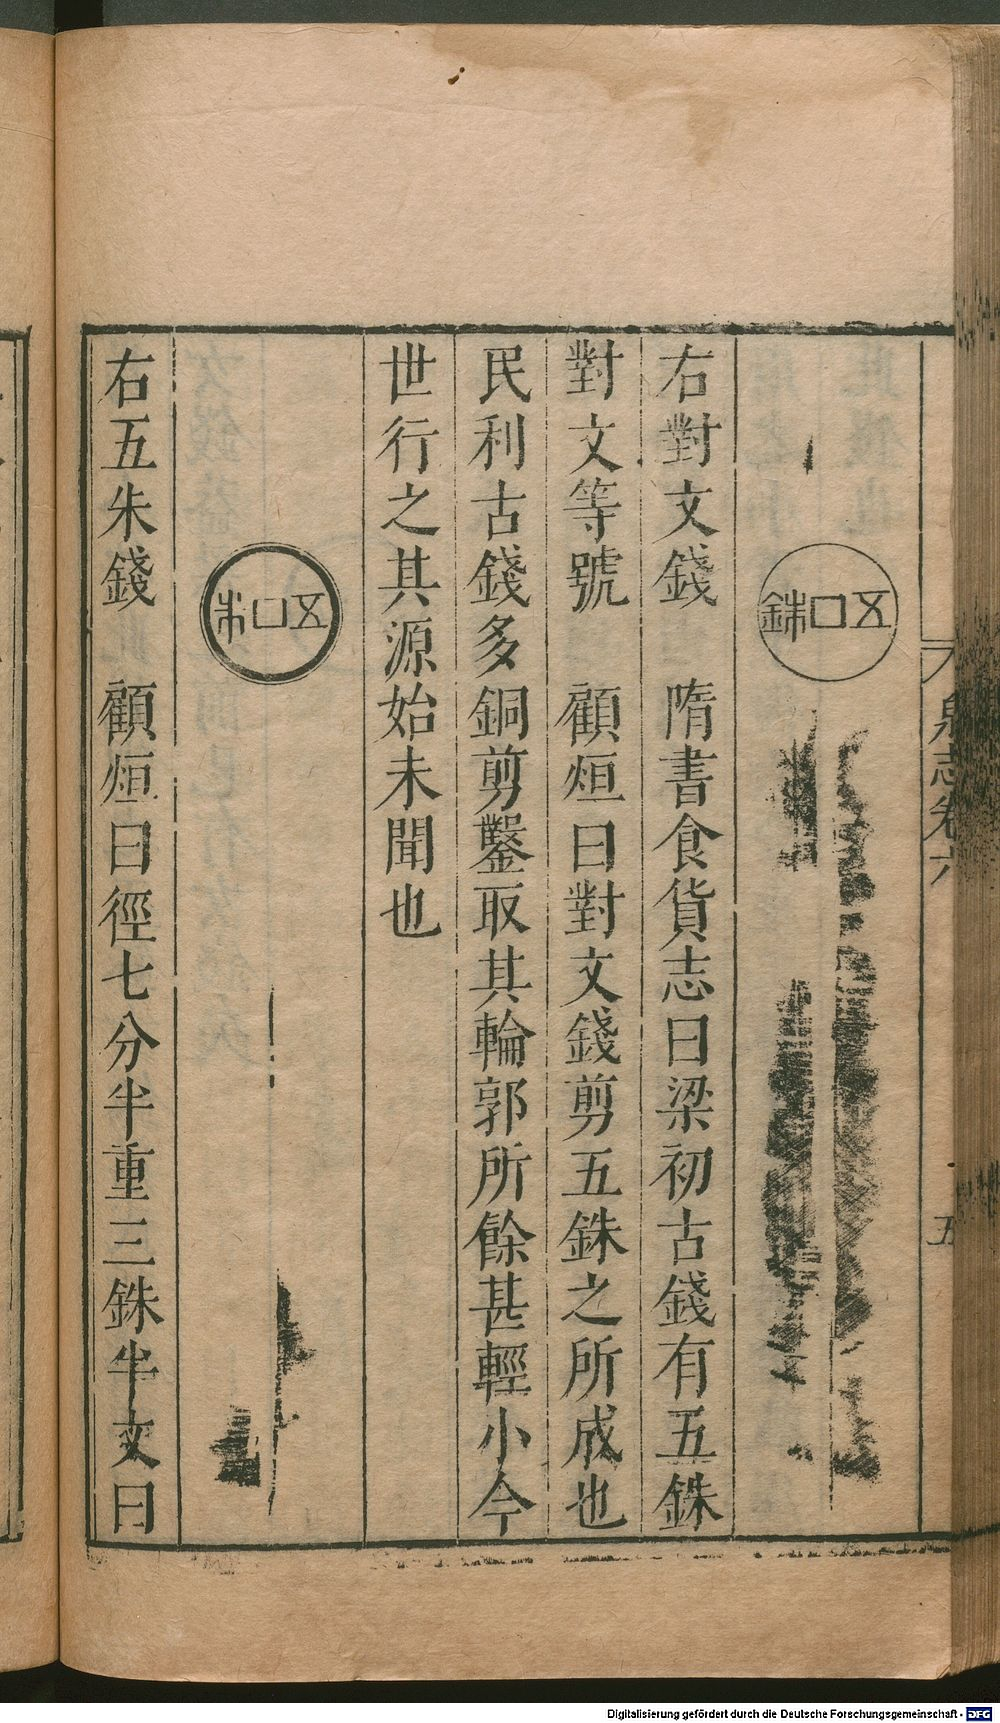 泉志卷六
五
五銖
右對文錢　隋書食貨志曰梁初古錢有五銖
對文等號　顧烜曰對文錢剪五銖之所成也
民利古錢多銅剪鑿取其輪郭所餘甚輕小今
世行之其源始未聞也
五朱
右五朱錢　顧烜曰徑七分半重三銖半文曰
Digitalisierung gefördert durch die Deutsche Forschungsgemeinschaft - DFG